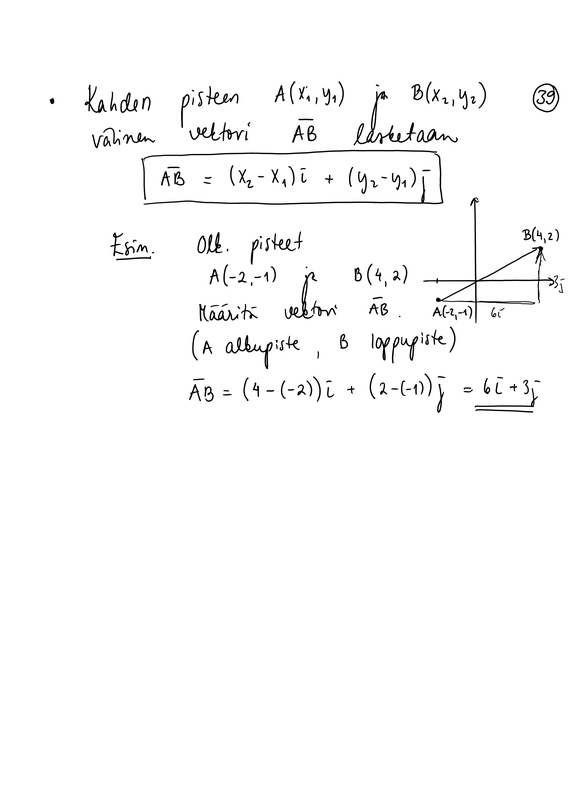 • Kahden pisteen A(x₁,y₁) ja B(x₂,y₂) 39
välinen vektori A̅B̅ lasketaan
A̅B̅ = (x₂-x₁)i̅ + (y₂-y₁)j̅
Esim. Olk. pisteet
A(-2,-1) ja B(4,2)
Määritä vektori A̅B̅.
(A alkupiste, B loppupiste)
A̅B̅ = (4-(-2))i̅ + (2-(-1))j̅ = 6i̅+3j̅
B(4,2)
3j̅
A(-2,-1) 6i̅